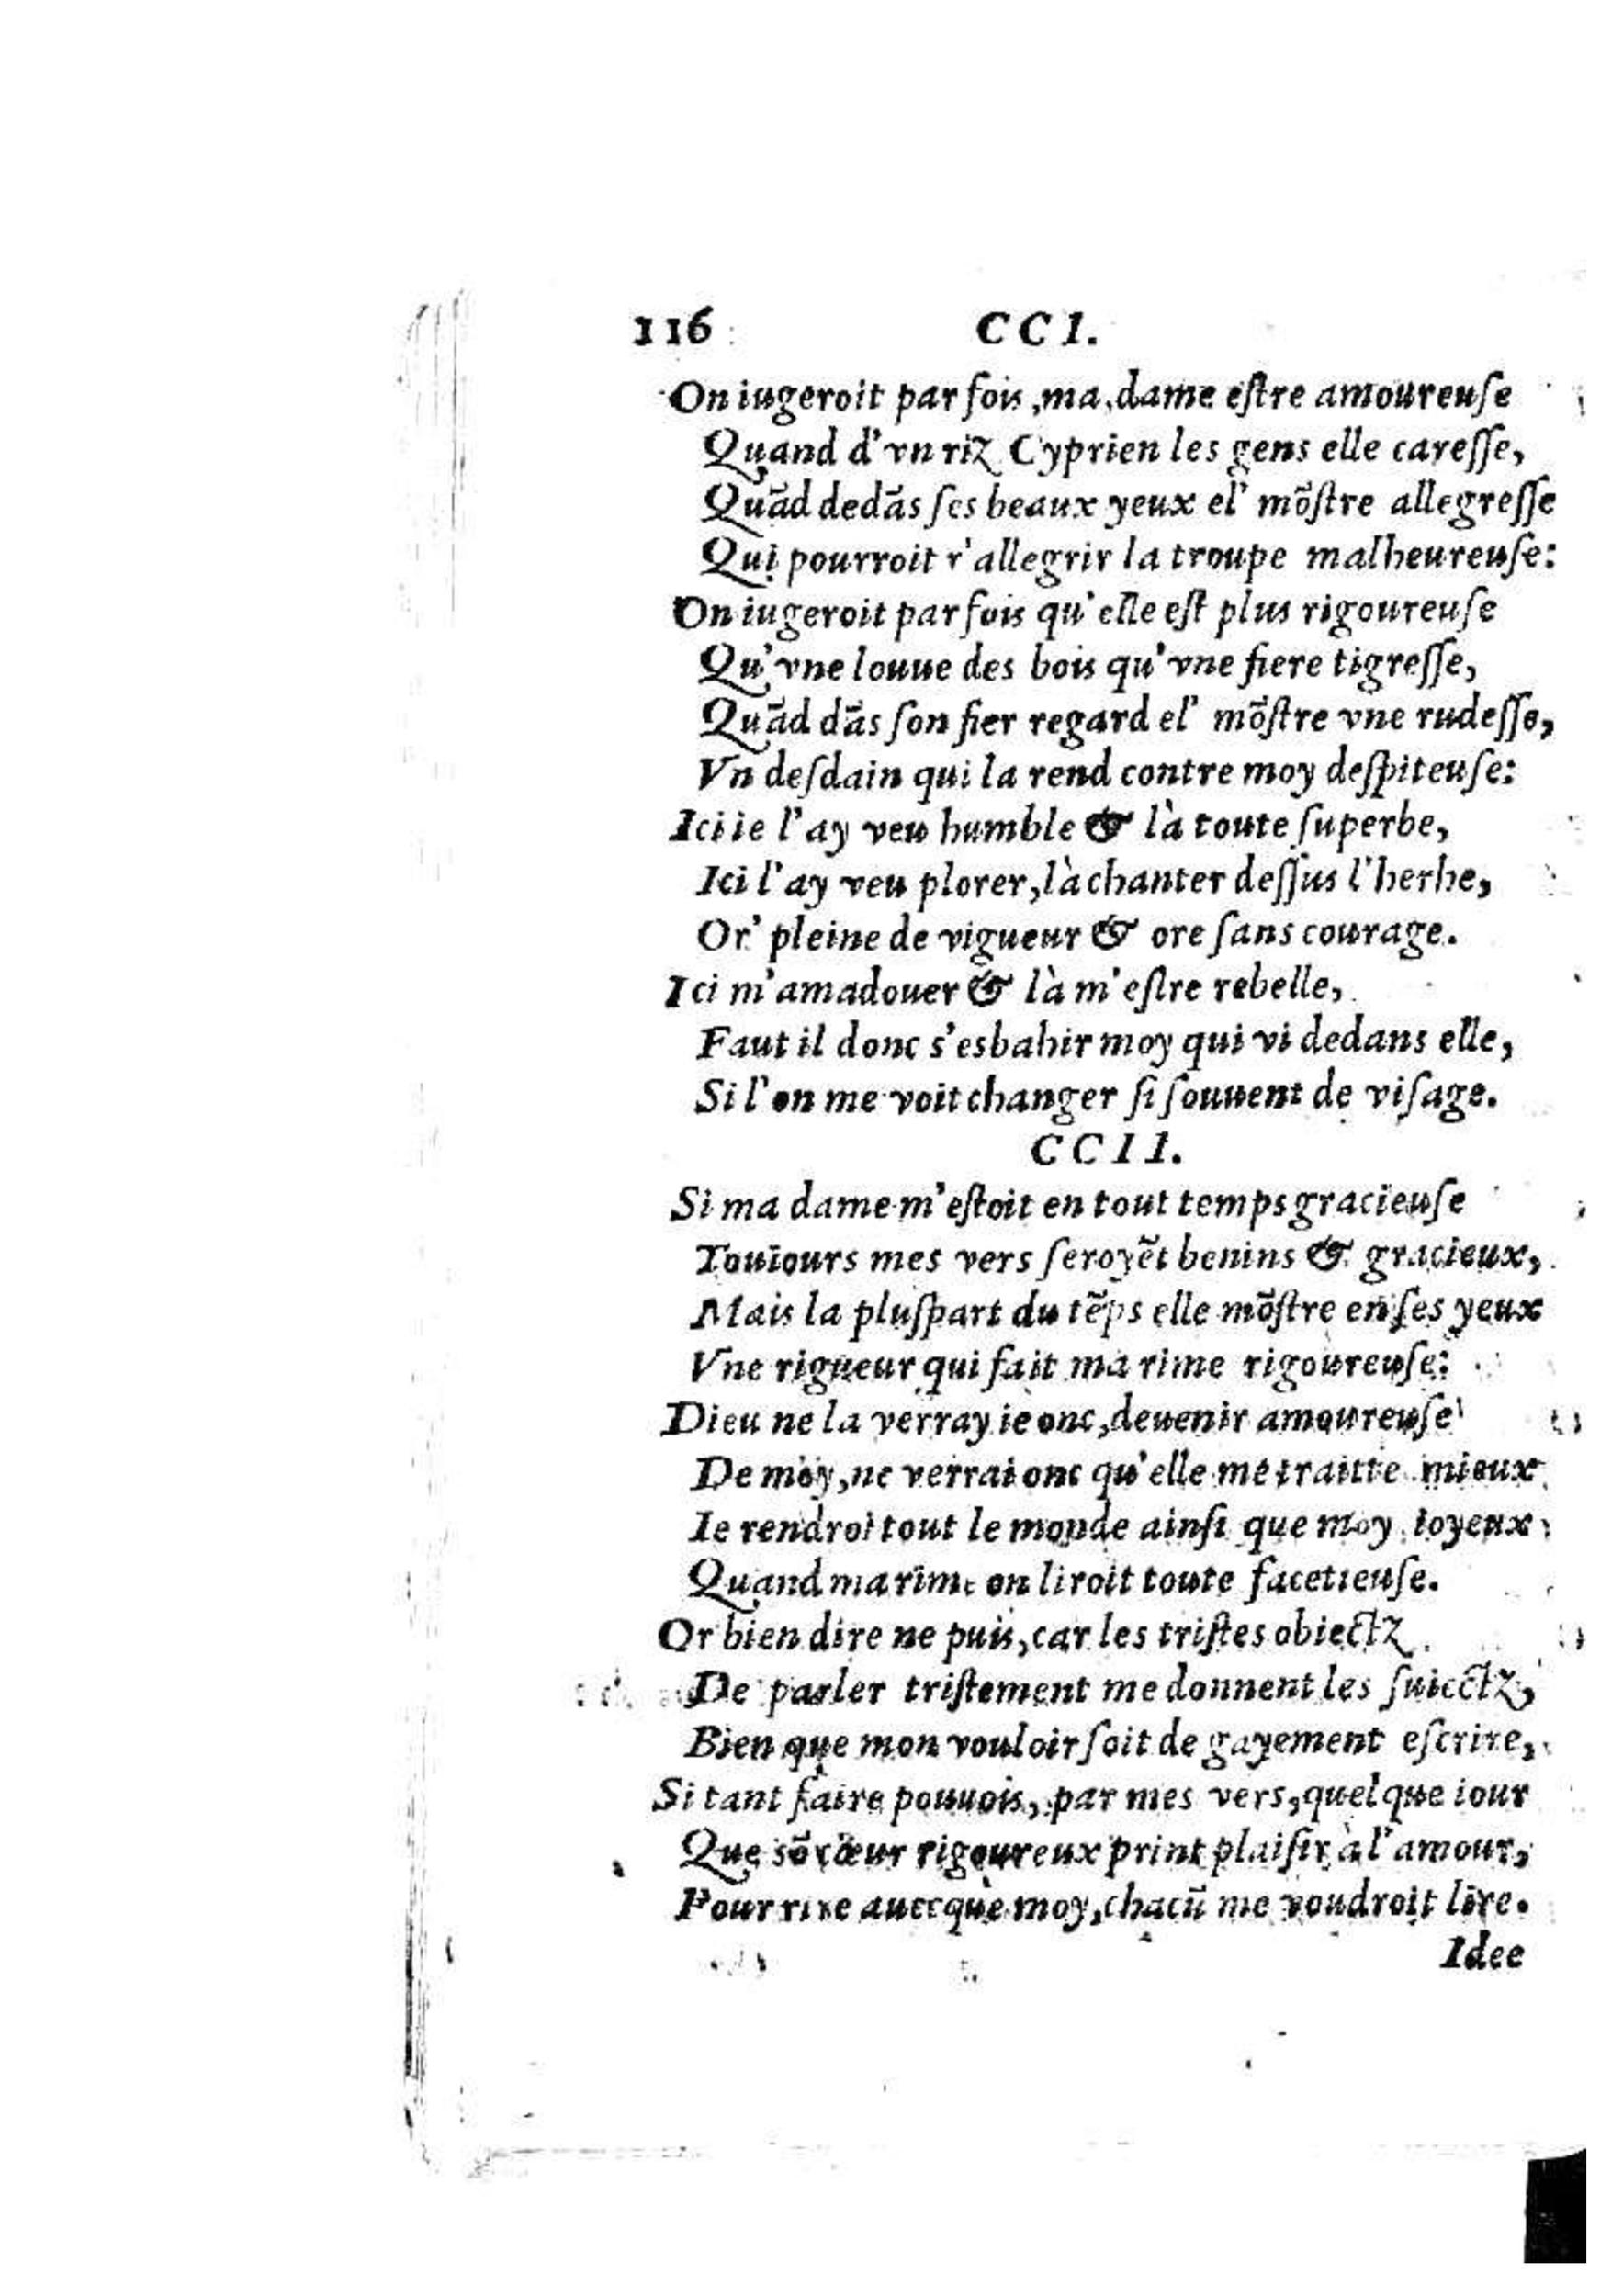 116 CCI.
On iugeroit par fois, ma, dame eſtre amoureuſe
Quand d'vn riz Cyprien les gens elle careſſe,
Quãd dedãs ſes beaux yeux el' mõſtre allegreſſe
Qui pourroit r'allegrir la troupe malheureuſe:
On iugeroit par fois qu'elle eſt plus rigoureuſe
Qu'vne louue des bois qu'vne fiere tigreſſe,
Quãd dãs ſon fier regard el' mõſtre vne rudeſſe,
Vn deſdain qui la rend contre moy deſpiteuſe:
Ici ie l'ay veu humble & là toute ſuperbe,
Ici l'ay veu plorer, là chanter deſſus l'herbe,
Or' pleine de vigueur & ore ſans courage.
Ici m'amadouer & là m'eſtre rebelle,
Faut il donc s'esbahir moy qui vi dedans elle,
Si l'on me voit changer ſi ſouuent de viſage.
CCII.
Si ma dame m'eſtoit en tout temps gracieuſe
Touiours mes vers ſeroyẽt benins & gracieux,
Mais la pluſpart du tẽps elle mõſtre en ſes yeux
Vne rigueur qui fait ma rime rigoureuſe:
Dieu ne la verray ie onc, deuenir amoureuſe
De moy, ne verrai onc qu'elle me traitte mieux
Ie rendroi tout le monde ainſi que moy ioyeux,
Quand ma rime on liroit toute facetieuſe.
Or bien dire ne puis, car les triſtes obiectz
De parler triſtement me donnent les ſuiectz,
Bien que mon vouloir ſoit de gayement eſcrire,
Si tant faire pouuois, par mes vers, quelque iour
Que sõ cœur rigoureux print plaiſir à l'amour,
Pour rire auecque moy, chacũ me voudroit lire.
Idee